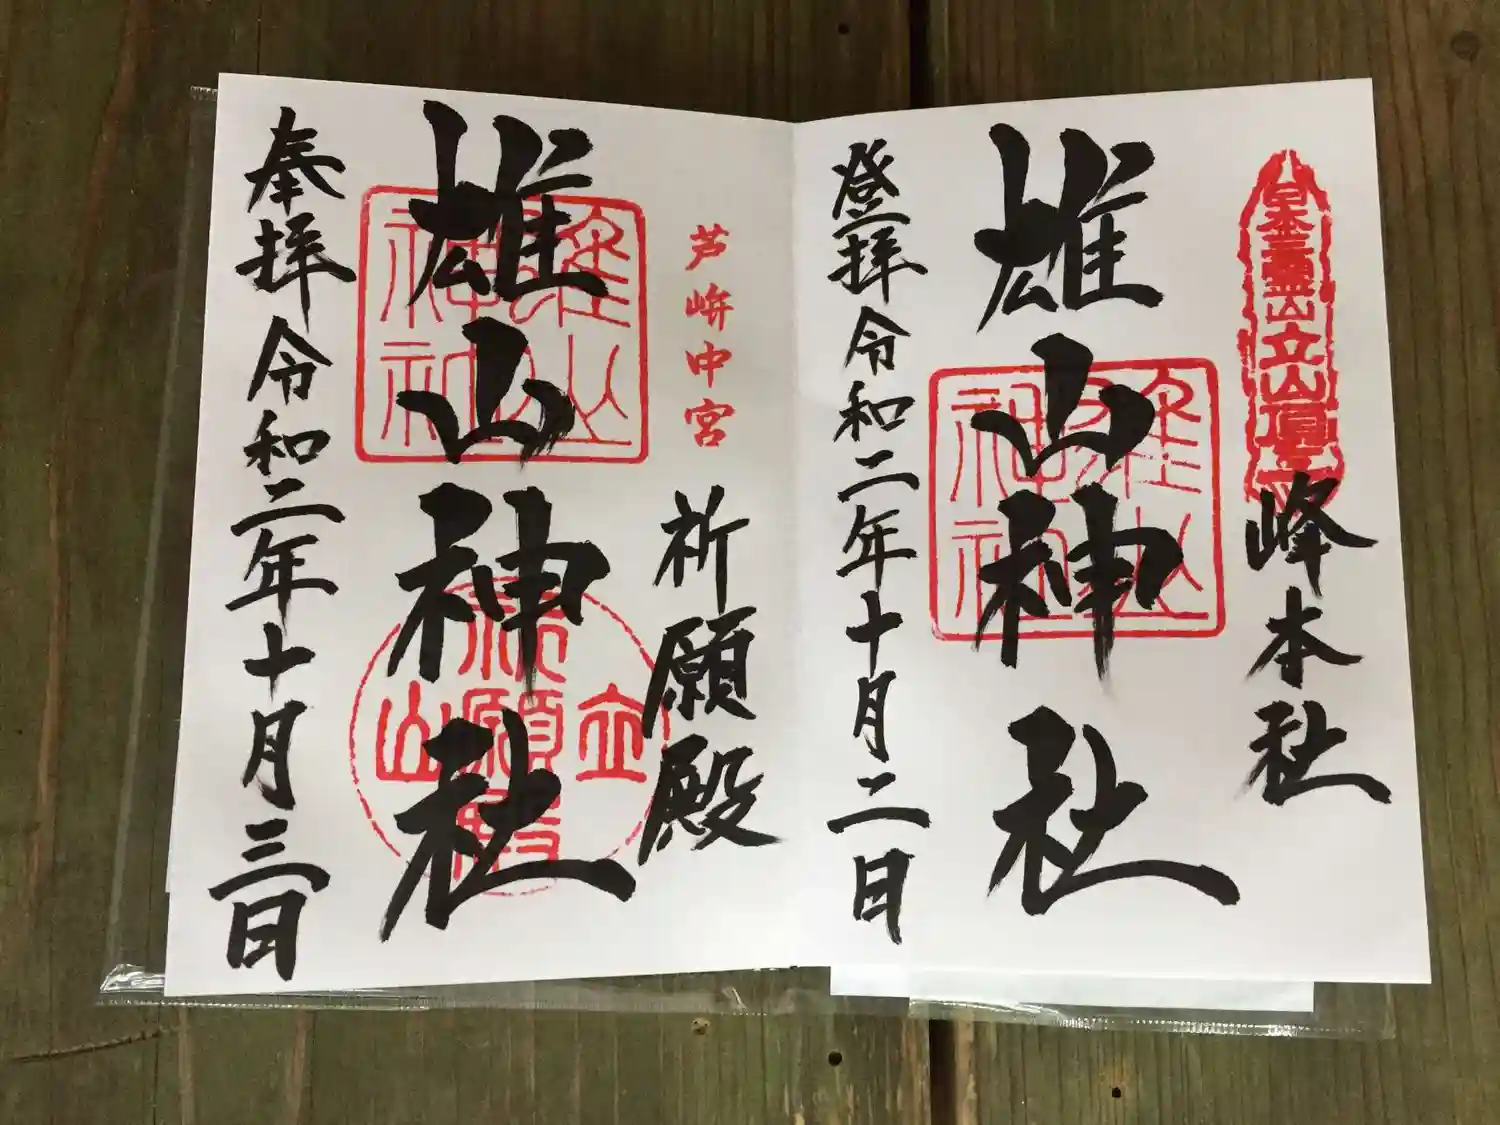 日本三霊山立山頂
峰本社
雄山神社
雄山神社
登拝令和二年十月二日
芦峅中宮
祈願殿
雄山神社
雄山神社
立山
祈願殿
奉拝令和二年十月三日